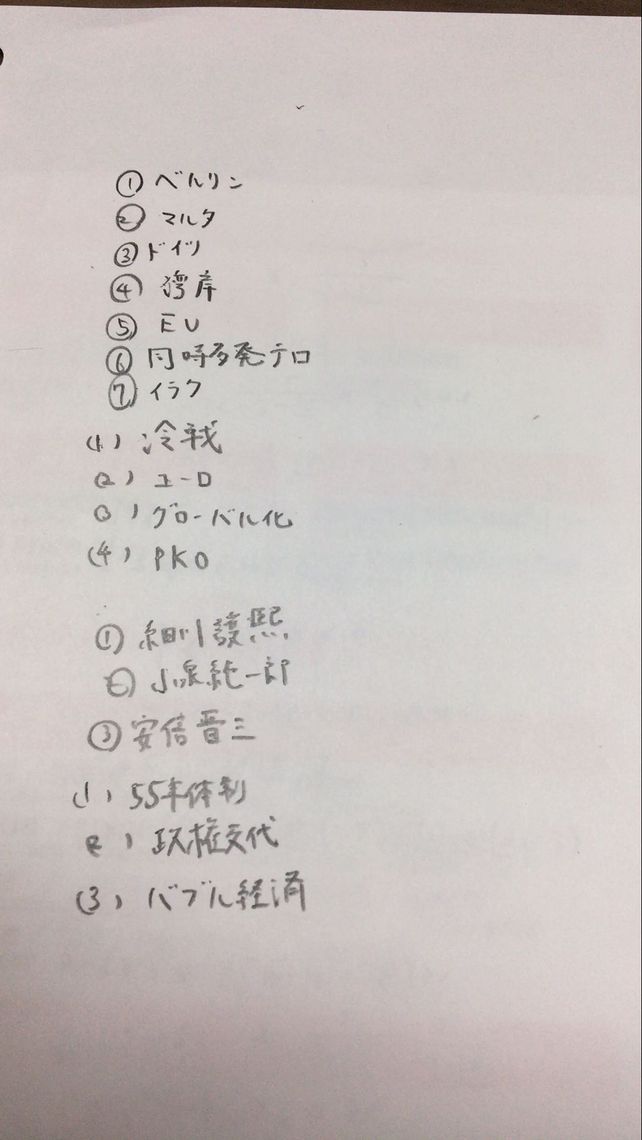 ① ベルリン
② マルタ
③ ドイツ
④ 湾岸
⑤ EU
⑥ 同時多発テロ
⑦ イラク
(1) 冷戦
(2) ユーロ
(3) グローバル化
(4) PKO
① 細川護熙
② 小泉純一郎
③ 安倍晋三
(1) 55年体制
(2) 政権交代
(3) バブル経済